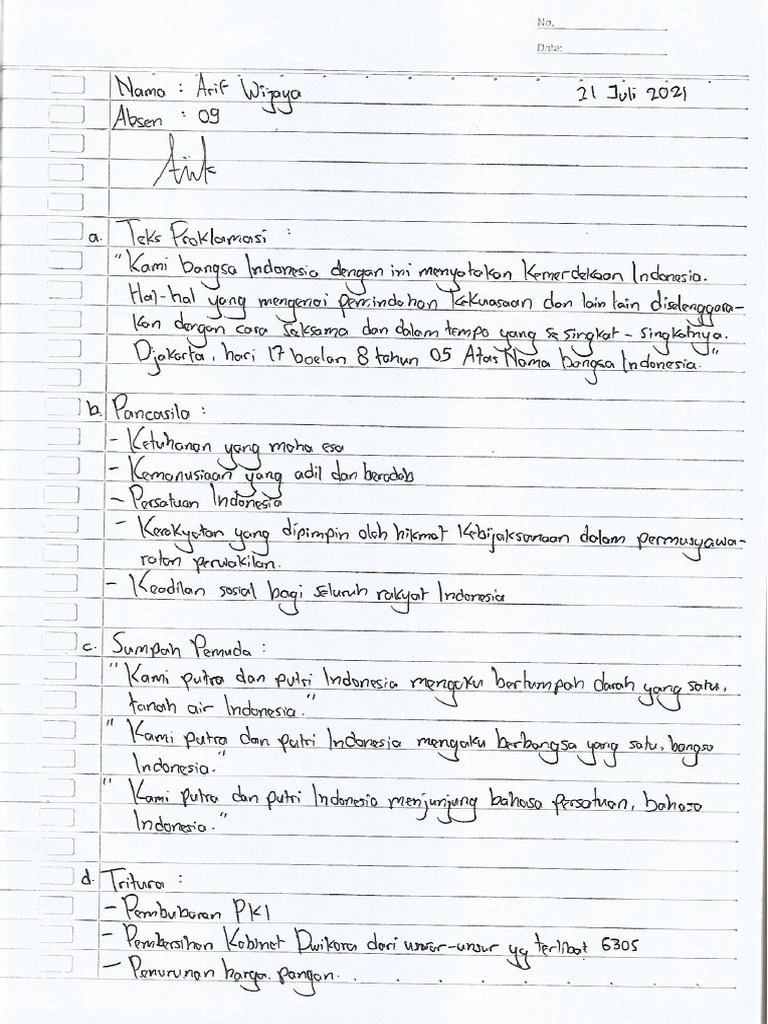 No.
Date:
Nama : Arif Wijaya 21 Juli 2021
Absen : 09
a. Teks Proklamasi :
"Kami bangsa Indonesia dengan ini menyatakan Kemerdekaan Indonesia.
Hal-hal yang mengenai pemindahan kekuasaan dan lain lain diselenggara-
kan dengan cara saksama dan dalam tempo yang se singkat - singkatnya.
Djakarta, hari 17 boelan 8 tahun 05 Atas Nama bangsa Indonesia."
b. Pancasila :
- Ketuhanan yang maha esa
- Kemanusiaan yang adil dan beradab
- Persatuan Indonesia
- Kerakyatan yang dipimpin oleh hikmat kebijaksanaan dalam permusyawa-
ratan perwakilan.
- Keadilan sosial bagi seluruh rakyat Indonesia
c. Sumpah Pemuda :
"Kami putra dan putri Indonesia mengaku bertumpah darah yang satu,
tanah air Indonesia."
"Kami putra dan putri Indonesia mengaku berbangsa yang satu, bangsa
Indonesia."
"Kami putra dan putri Indonesia menjunjung bahasa persatuan, bahasa
Indonesia."
d. Tritura :
- Pembubaran PKI
- Pembersihan Kabinet Dwikora dari unsur-unsur yg terlibat G30S
- Penurunan harga pangan.